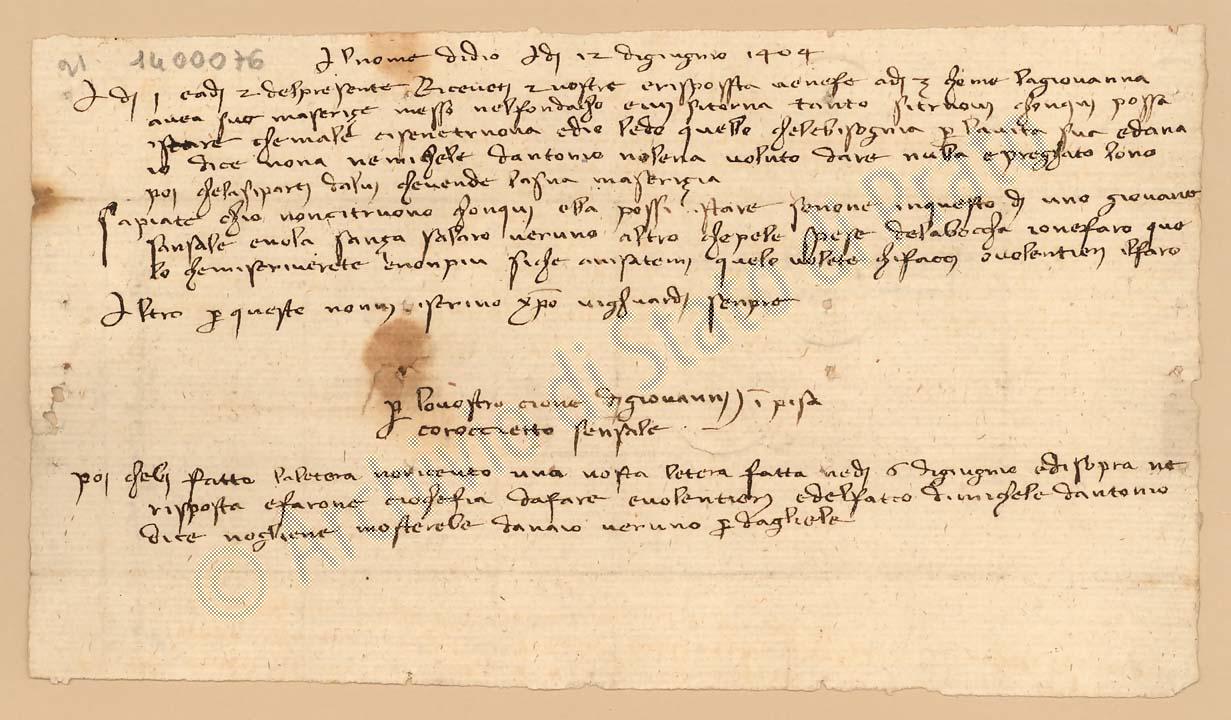 21 1400076
Al nome didio Adi 12 digiugno 1404
Adi 1 e adi 2 delpresente Riceveti 2 vostre e rispossta venefe adi 3 chome lagiovanna
avea sue maserize messo nelfondacho e ivi sitorna tanto sitruovi chonqui possa
istare chemale cisenetruova edio ledo quello chelebisognia per lavita sua edana
io dice nona ne michele dantonio nolena voluto dare nulla e preghato lono
poi chelasiparti dalui chevende lasua maserizia
Sapiate chio noncitruovo chonqui ella possi istare senone inquesto di uno giovane
sensale evola sanza salaro veruno altro chepele spese delabocha ionefaro que
lo chemiscriverete enonpiu siche avisatemi quelo volete chifacci e volentieri ilfaro
Altro per questo nonvi iscrivo xpo vighuardi senpre
per lovostro cione digiovanni in pisa
coregietto sensale
poi chebi fatto laletera noriceuto una vostra letera fatta nedi 6 digiugnio edisopra ne
risposta e farone cio chesia dafare e volentieri edelfatto dimichele dantonio
dice nogliene mosterebe danaio veruno per dagliele
© Archivio di Stato di Prato